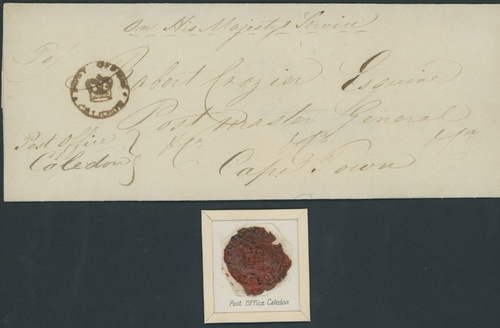 On His Majesty's Service
To
POST OFFICE
CALEDON
Robert Crozier Esquire
Post master General
Post Office
Caledon
&c &c &c
Cape Town
Post Office Caledon